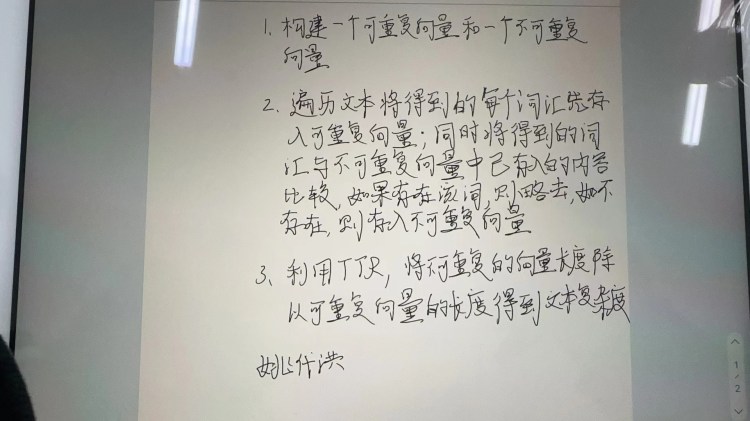 1. 构建一个可重复向量和一个不可重复
向量
2. 遍历文本将得到的每个词汇先存
入可重复向量；同时将得到的词
汇与不可重复向量中已存入的内容
比较，如果存在该词，则略去，如不
存在，则存入不可重复向量
3. 利用TTR，将不可重复的向量长度除
以可重复向量的长度得到文本复杂度
姚 洪
1
2